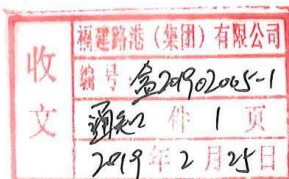 收文
福建路港（集团）有限公司
编号:盒201902065-1
通知 件 1 页
2019年2月25日